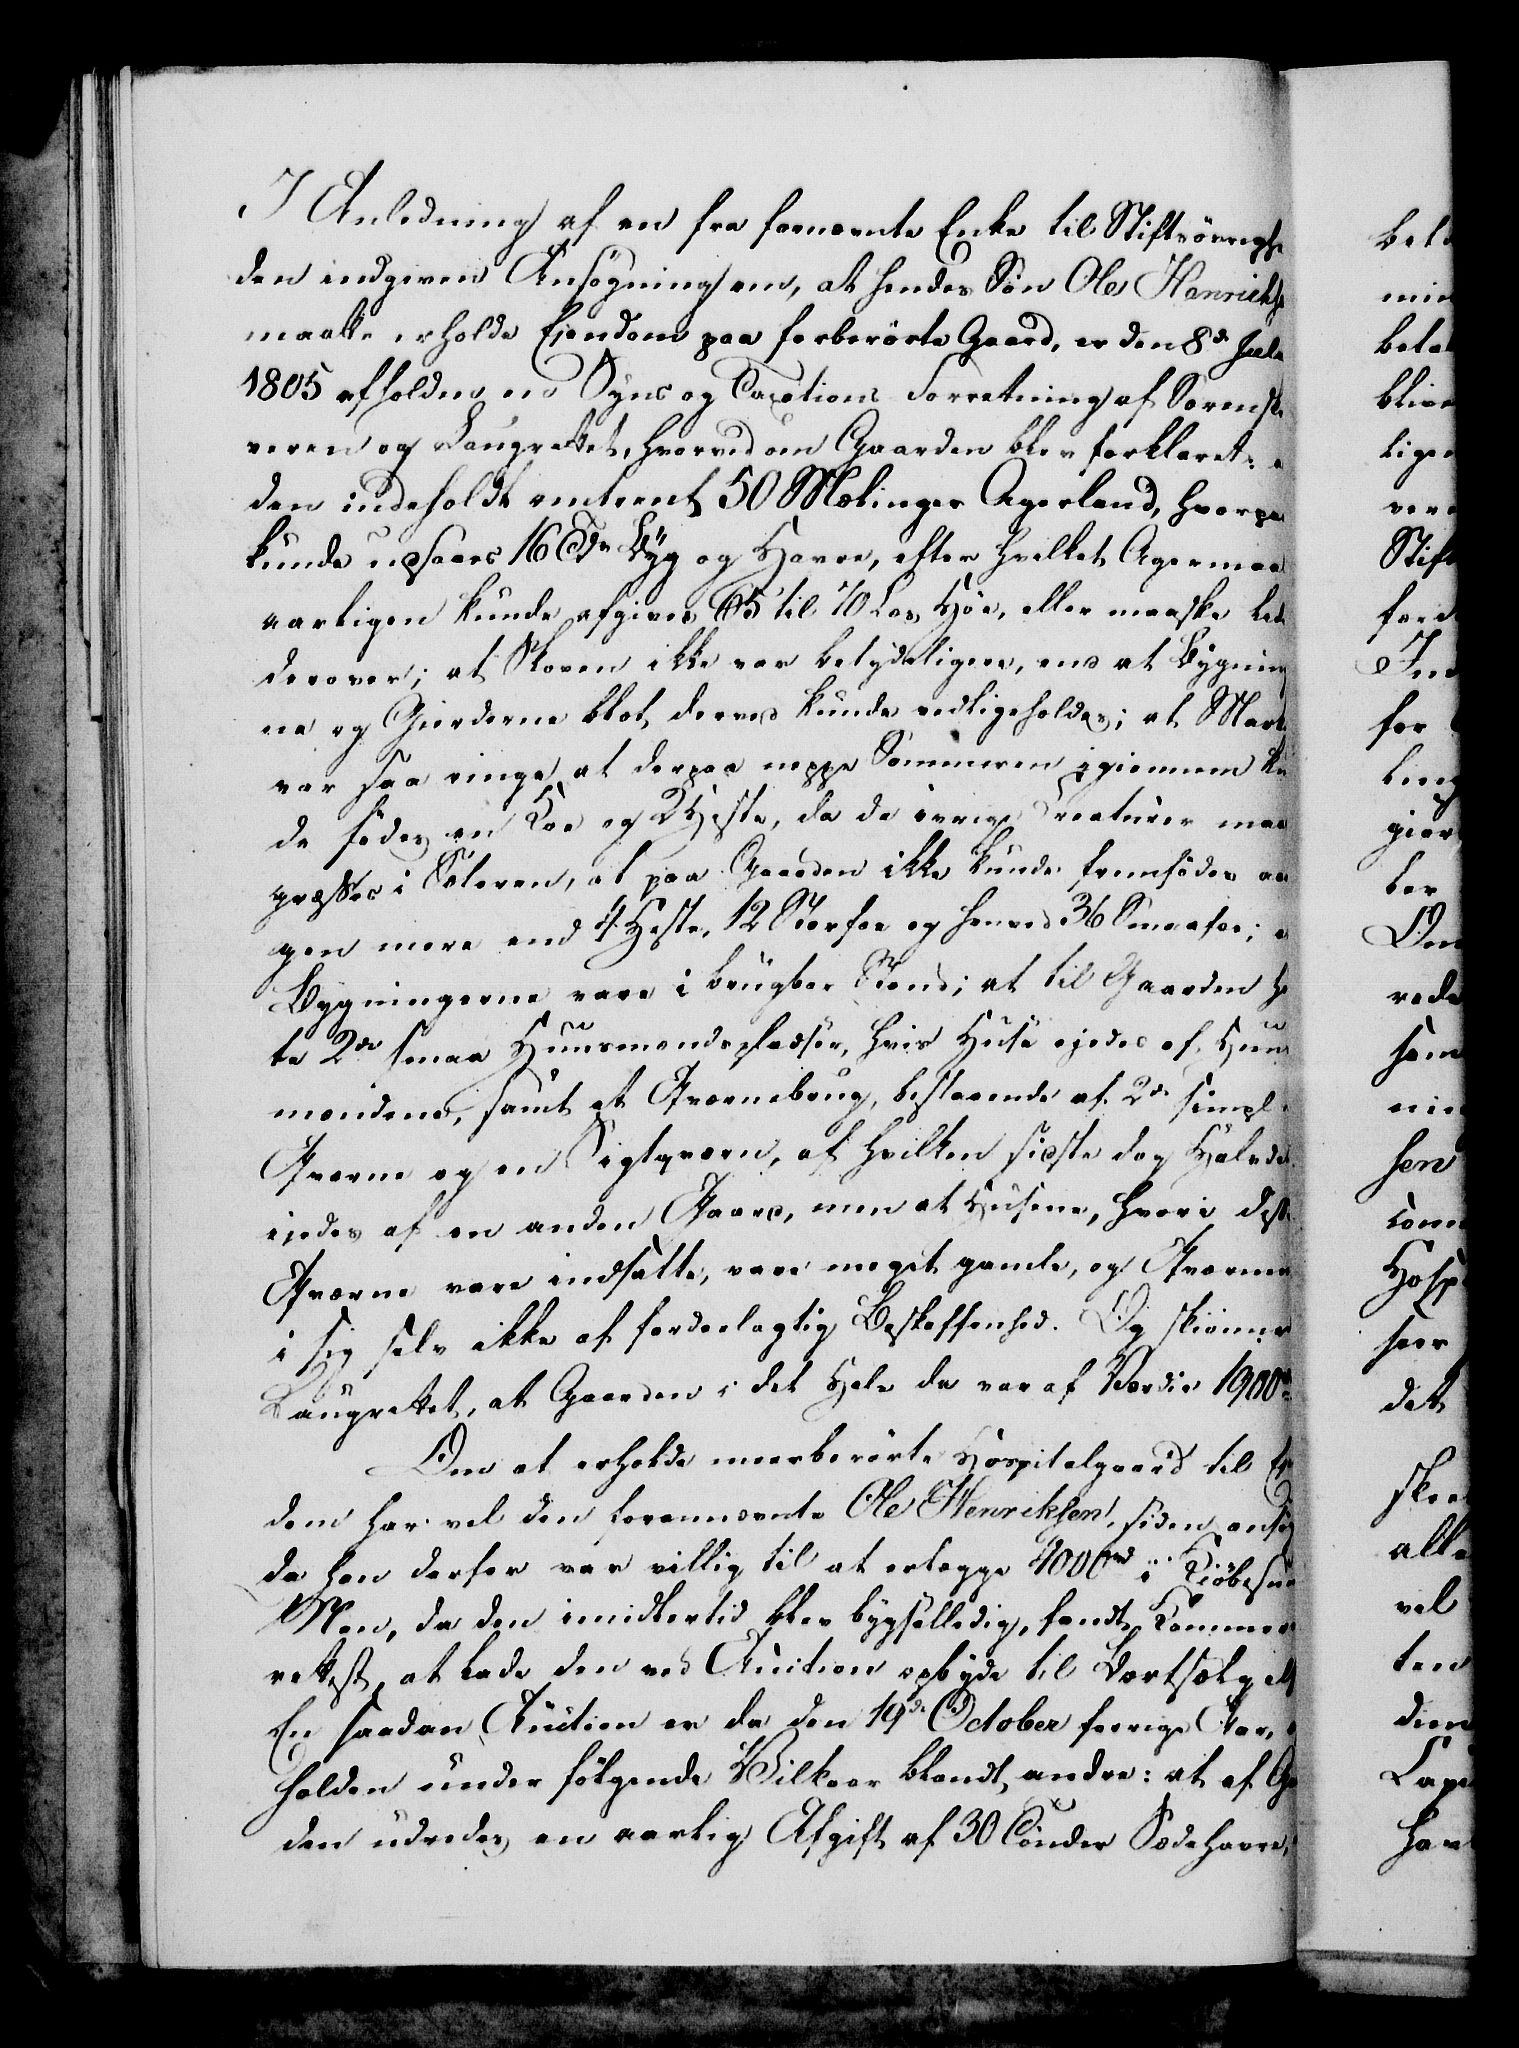 I Anledning af en fra fornævnte Enke til Stiftsövrighe
den indgiven Ansøgning om, at hendes Søn Ole Henrichs
maatte erholde Ejendom paa forberørte Gaard, er den 8de Jule
1805 afholden en Syns og Taxations Forretning af Sorenskri
veren og Laugrettet, hvorved om Gaarden blev forklaret: a
den indeholdt omtrent 50 Mælinger Agerland, hvorpaa
kunde udsaaes 16 Tdr Byg og Havre, efter hvilket Agermaal
aarligen kunde afgives 65 til 70 Læs Høe, eller maaskee lidt
derover; at Skoven ikke var betydeligere, end at Bygning
ne og Gierderne blot derved kunde vedligeholdes; at Mark
var saa ringe, at derpaa neppe Sommeren igiennem kun
de fødes en Koe og 2 Heste, da de øvrige Creaturer maa
græsses i Sæteren, at paa Gaarden ikke kunde fremfødes no
gen mere end 4 Heste, 12 Storfæe og henved 36 Smaafæe; a
Bygningerne vare i brugbar Stand; at til Gaarden hø
te 2de smaa Huusmandspladser, hvis Huse ejedes af Huus
mændene, samt et Qværnebrug, bestaaende af 2de simple
Qværne og en Sigtqværn, af hvilken sidste dog Halvde
ejedes af en anden Gaard, men at Husene, hvori disse
Qværne vare indsatte, vare meget gamle, og Qværnene
i sig selv ikke af fordeelagtig Beskaffenhed. Og skiønner
Laugrettet, at Gaarden i det Hele da var af Værdie 1900rd
Om at erholde meerberørte Hospitalgaard til Ejen
dom har vel den forommævnte Ole Henriksen, siden ansøg
da han derfor var villig til at erlægge 4000rd i Kiøbesum
Men, da den imidlertid blev bygselledig, fandt Kammer
rettest, at lade den ved Auction opbyde til Bortsælgels
En saadan Auction er da den 19de October forrige Aar, a
holden under følgende Vilkaar blandt andre: at af Ga
den udredes en aarlig Afgift af 30 Tønder Sædehavre,